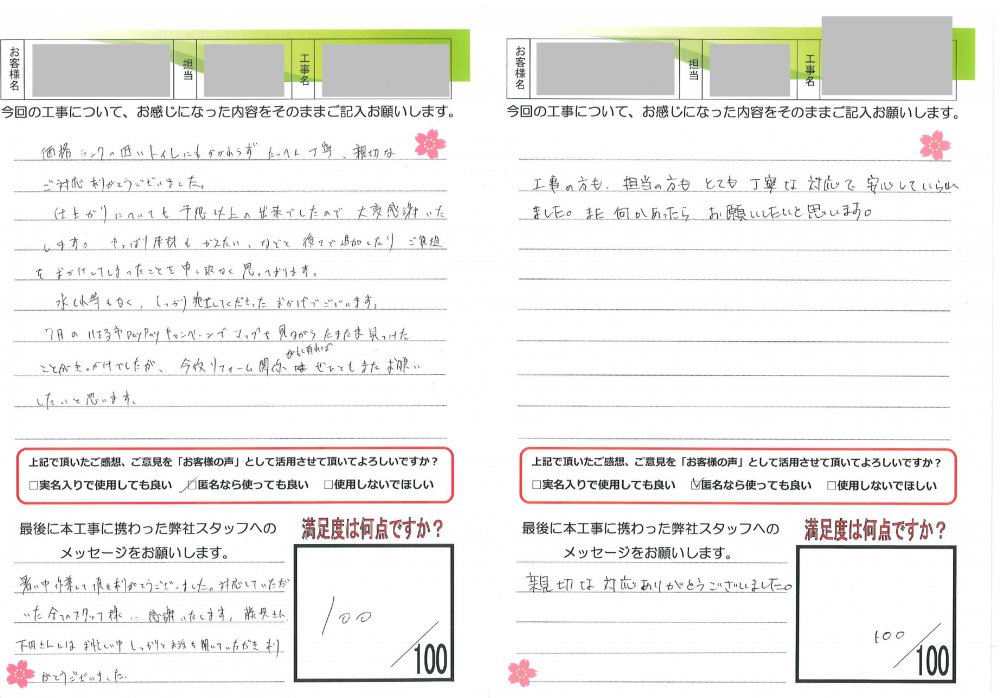 お客様名
担当
工事名
今回の工事について、お感じになった内容をそのままご記入お願いします。
価格ランクの低いトイレにもかかわらず たいへん丁寧、親切な
ご対応ありがとうございました。
仕上がりについても予想以上の出来でしたので 大変感謝いた
します。やっぱり床材もかえたい、などと後々で追加したり ご負担
をおかけしてしまったことを申し訳なく思っております。
水もれ等もなく、しっかり施工してくださった おかげでございます。
7月の はる市PayPayキャンペーンで マップを見ながら たまたま見つけた
ことがきっかけでしたが、今後リフォーム関係 ぜひともまたお願い
したいと思います。
上記で頂いたご感想、ご意見を「お客様の声」として活用させて頂いてよろしいですか？
□実名入りで使用しても良い □匿名なら使っても良い □使用しないでほしい
最後に本工事に携わった弊社スタッフへの
メッセージをお願いします。
暑い中作業して頂きありがとうございました。対応していただ
いた全てのスタッフ様に感謝いたします。
お忙しい中 しっかりとお話を聞いていただき あり
がとうございました。
満足度は何点ですか？
100
／100
お客様名
担当
工事名
今回の工事について、お感じになった内容をそのままご記入お願いします。
工事の方も、担当の方も とても 丁寧な対応で 安心していられ
ました。また 何かあったら お願いしたいと思います。
上記で頂いたご感想、ご意見を「お客様の声」として活用させて頂いてよろしいですか？
□実名入りで使用しても良い ☑匿名なら使っても良い □使用しないでほしい
最後に本工事に携わった弊社スタッフへの
メッセージをお願いします。
親切な対応ありがとうございました。
満足度は何点ですか？
100
／100